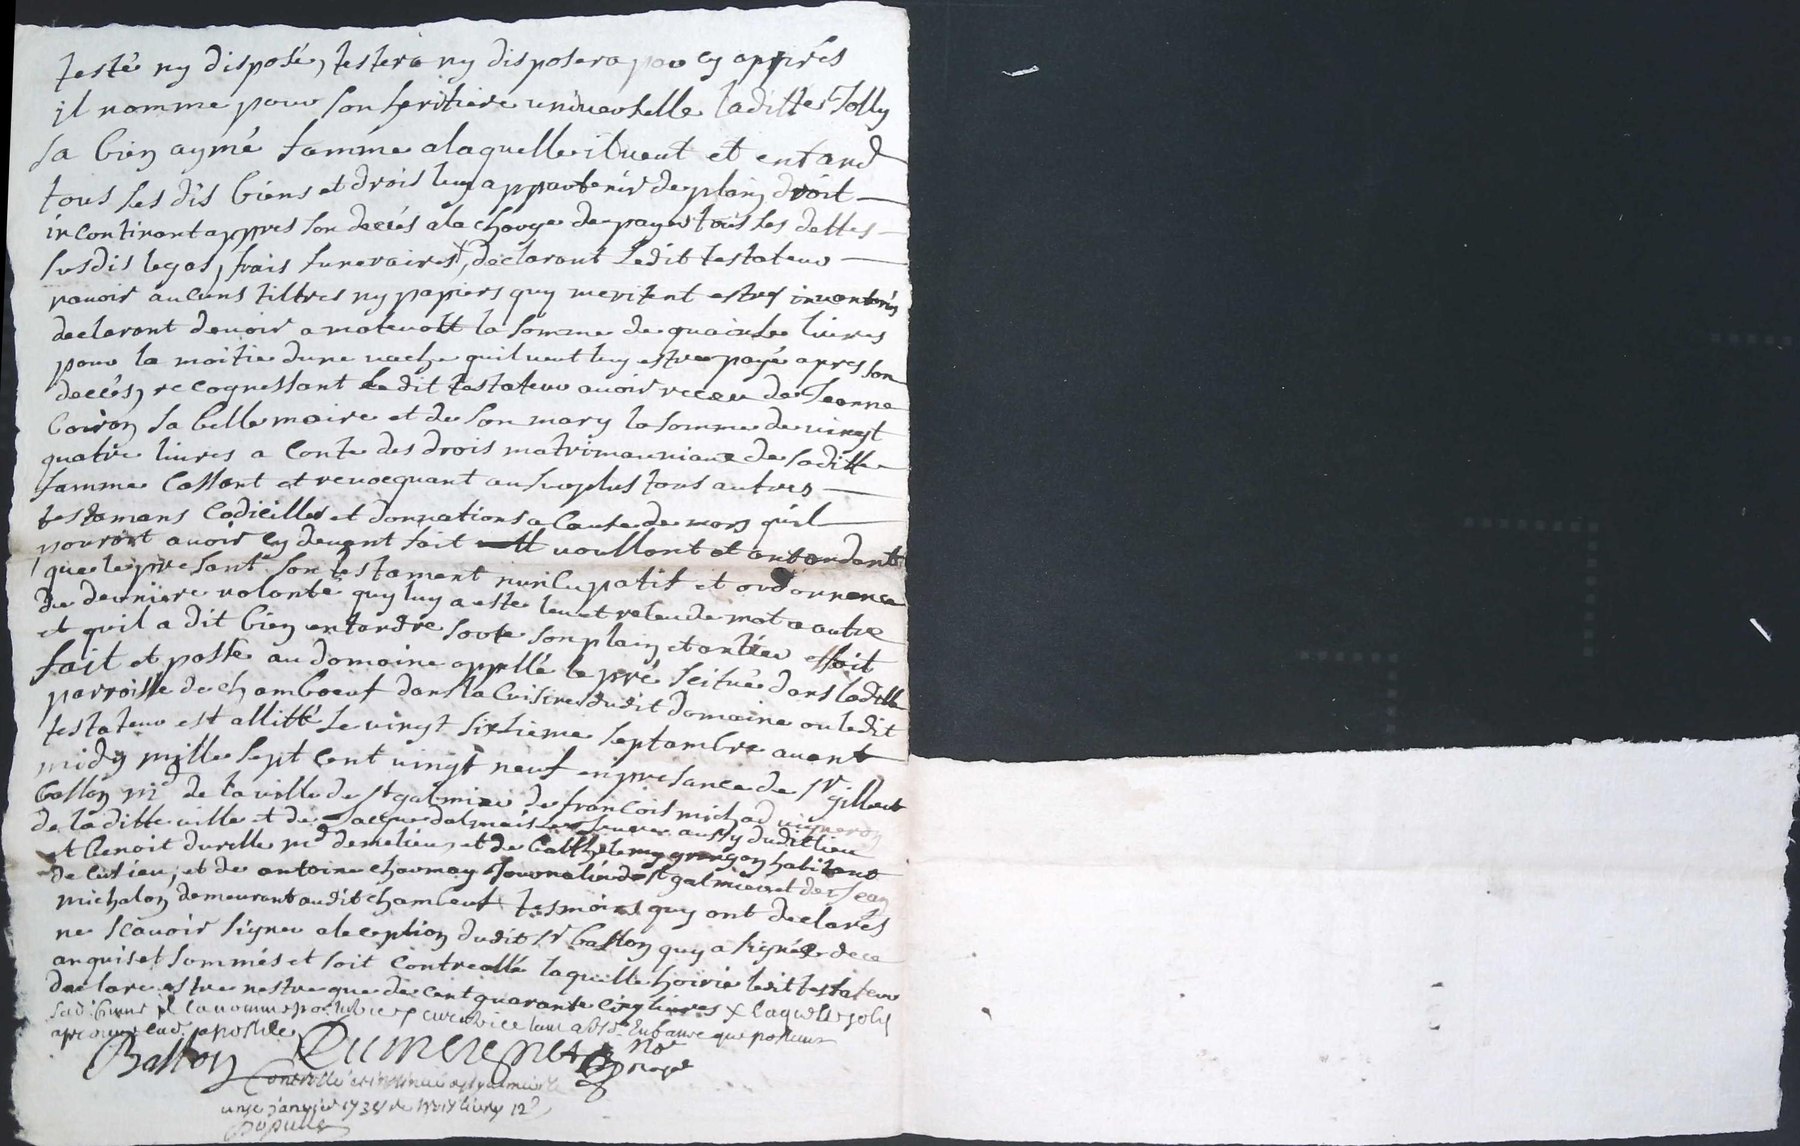 testé ny disposé, testera ny disposera pou cy apprés
il nomme pour son heritiere universelle laditte Jolly
sa bien aymé famme a laquelle il veut et entand
tous ses dis biens et drois luy appartenir de plain droit
incontinant appres son deceés a la charge de payer tous ses dettes
susdis legas, frais funeraires, declarant ledit testateur
navoir aucuns tiltres ny papiers quy meritent estres inventoriés
declarant devoir a la somme de quainse livres
pour la moitie dune vache quil veut luy estre payé apres son
decés, recognessant ledit testateur avoir receu de Jeanne
Coiron sa belle maire et de son mary la somme de vingt
quatre livres a conte des drois matrimauniaux de saditte
famme cassant et revocquant au surplus tous autres
testamans codicilles et donnations a cause de mors quil
pourait avoir cy devent fait voullant et antandant
que le presant son testament nuncupatif et ordonnence
de derniere volonte quy luy a este leu et releu de mot a autre
et quil a dit bien entandre sorte son plain et antier effait
fait et passé au domaine appellé le pré scitué dans laditte
parroisse de chambœuf dans la cuisine dudit domaine ou ledit
testateur est allitté le vingt sixsieme septambre avant
midy mille sept cent vingt neuf en presance de sr gilbert
Baston md de la ville de st galmier de francois michad vigneron
de laditte ville et de Jacque dalmais aussy dudit lieu
et Benoit durelle md demelieu et de Barthelemy grangon habitant
de cu lieu, et de antoine chaumay Journalier de st galmier et de Jean
michalon demeurant audit chambeuf tesmoins quy ont declarés
ne scavoir signer a leception dudit sr Baston quy a signé de ce
anquis et sommés et soit controllé laquelle hoirie ledit testateur
declare estre nestre que de cent quarante cinq livres x laquelle jolly
sad. famme il la nomme pour tutrice et curatrice leur enfance que
apreuvé lad. apostille
Baston Dumeremet no Royal
Controllé et insinué a st galmier le
unze janvier 1738 livres 12s